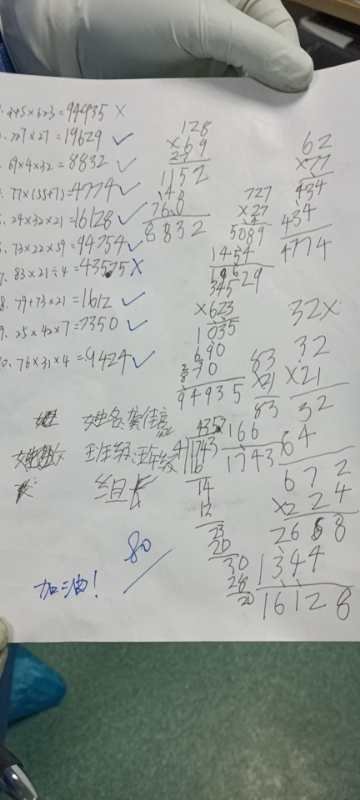 345×623=94935 ×
727×27=19629 ✓
69×4×32=8832 ✓
77×(55+7)=4774 ✓
24×32×21=16128 ✓
73×22×59=94754 ✓
7. 83×21÷4=43575 ×
8. 79+73×21=1612 ✓
9. 25×42×7=7350 ✓
0. 76×31×4=9424 ✓
姓名
班级
组长
80
加油！
128
×69
1152
768
8832
727
×27
5089
1454
19629
62
×77
434
434
4774
345
×623
1035
690
94935
83
×21
83
166
1743
32×
32
×21
32
64
672
×24
2688
1344
16128
4
1743
16
14
12
23
20
30
28
20